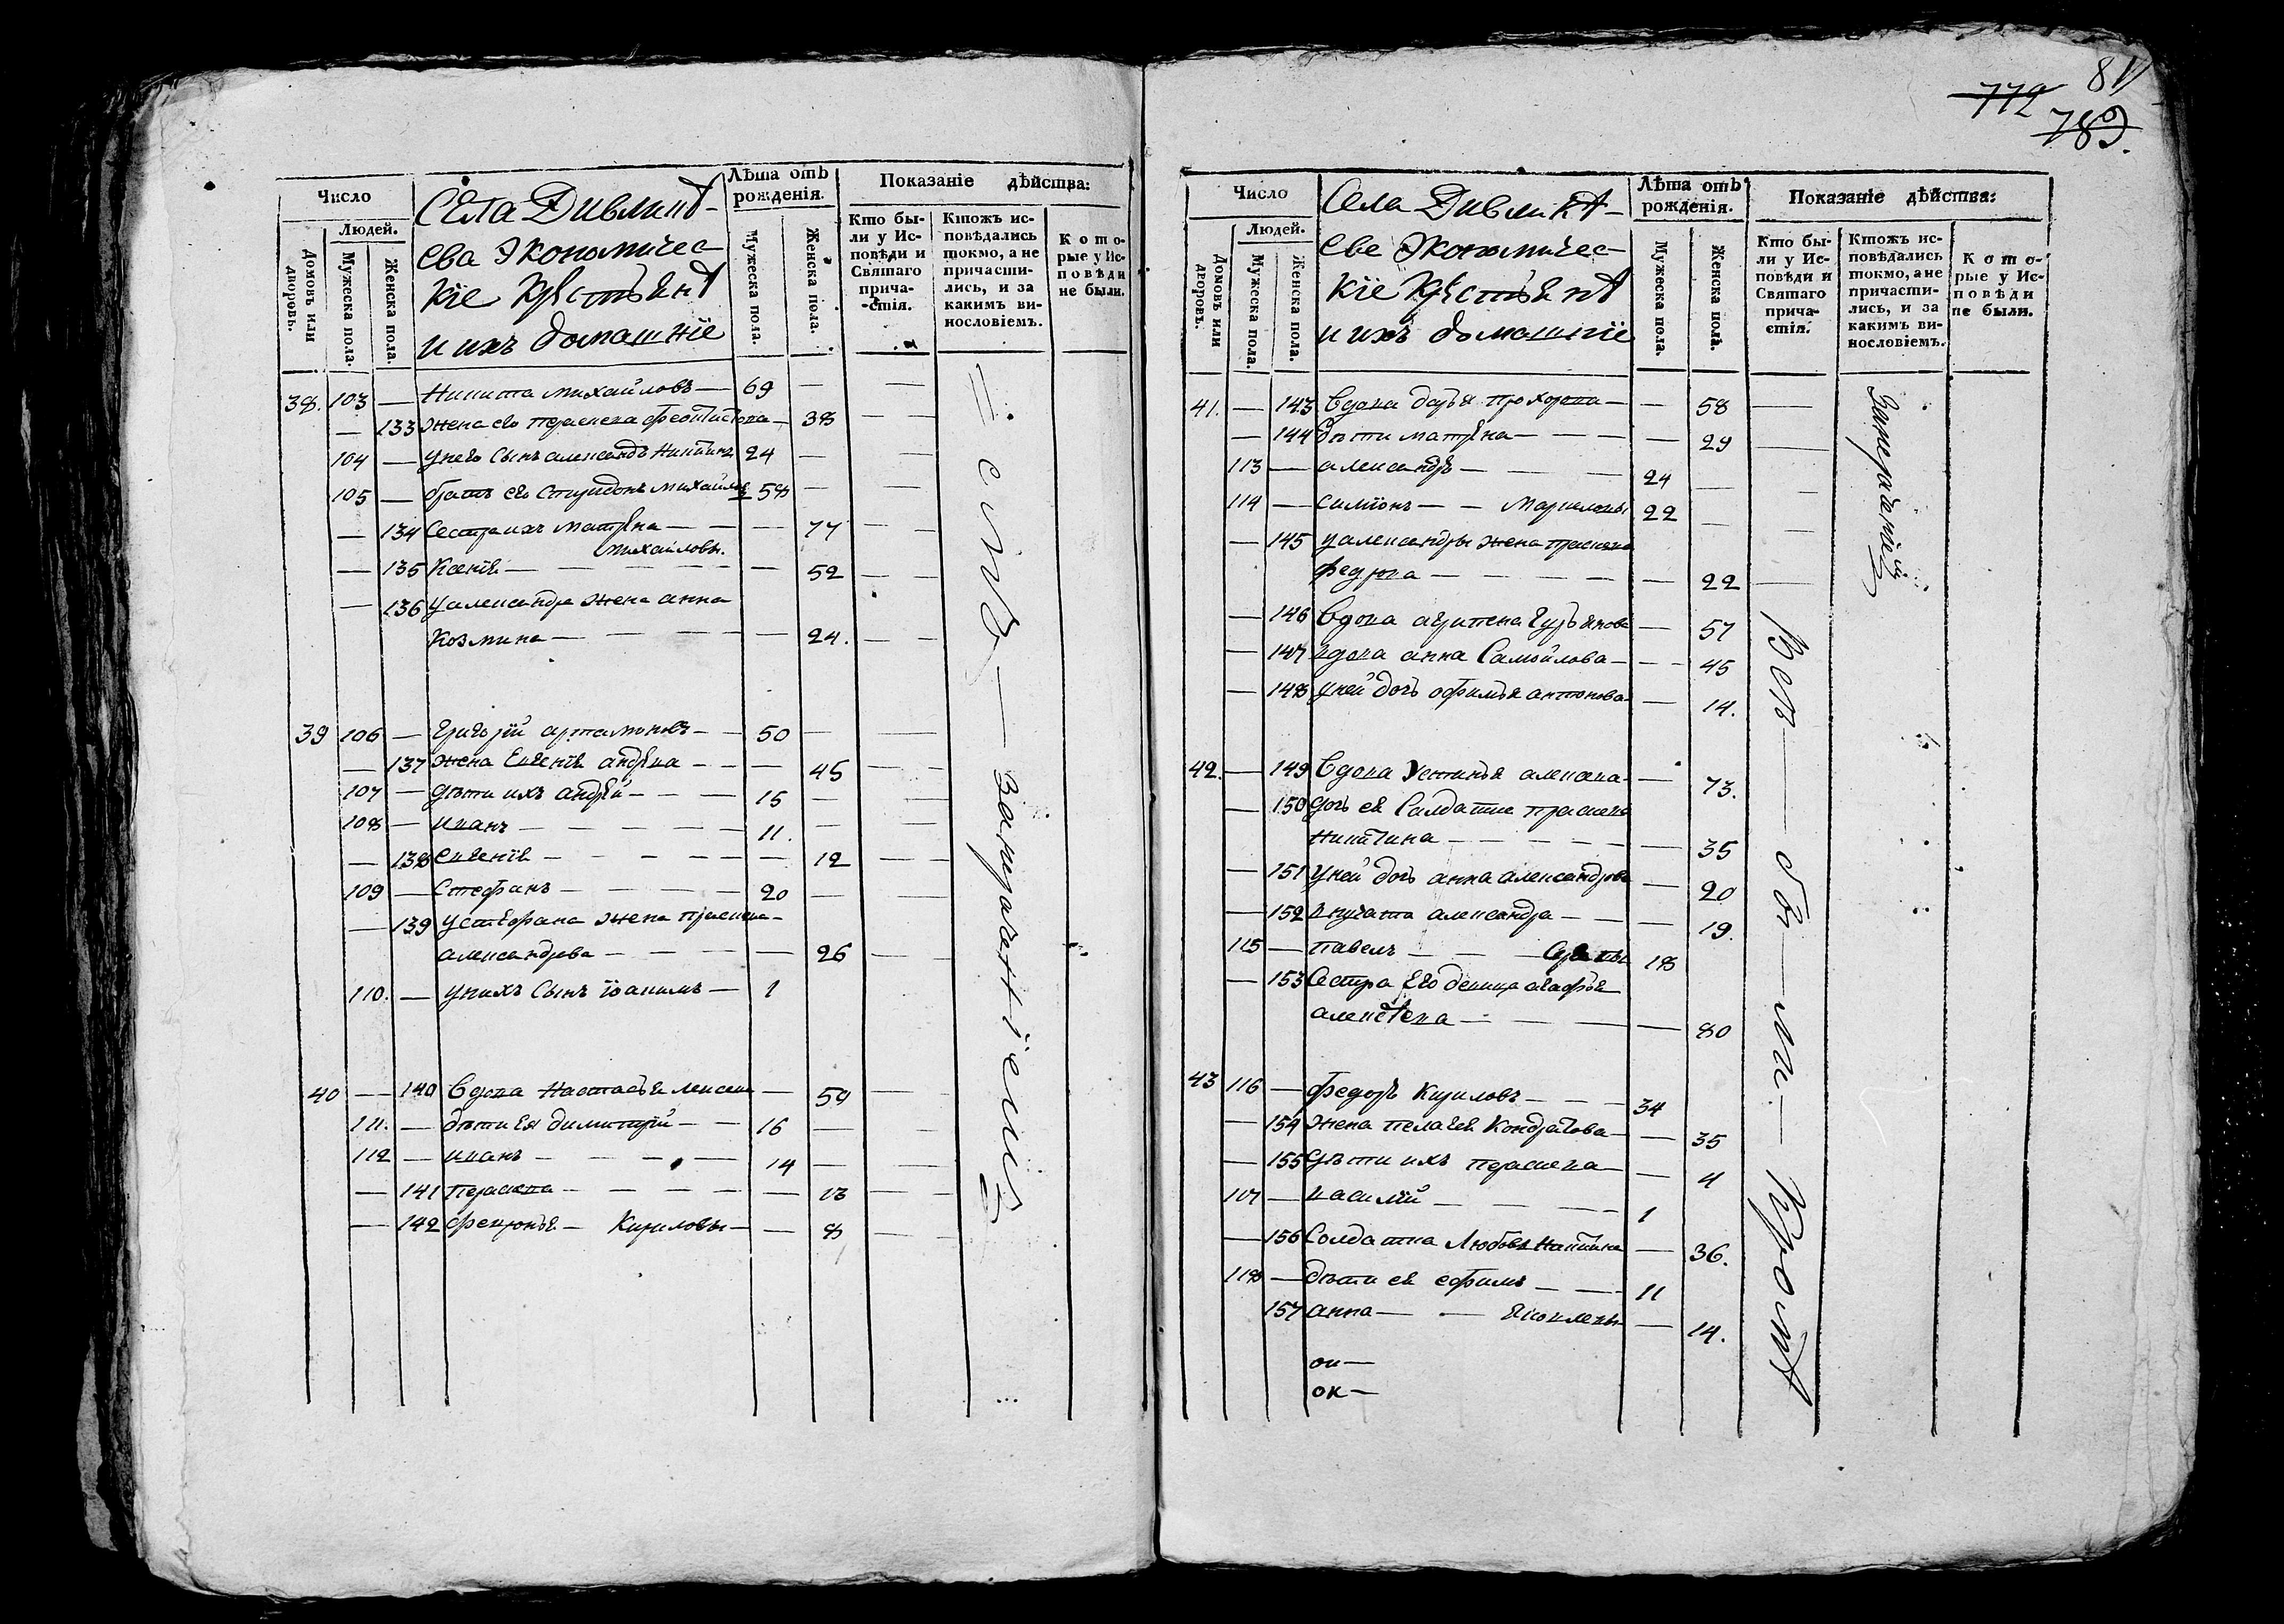 81
772
789.
Число
Людей.
Домовъ или дворовъ.
Мужеска пола.
Женска пола.
Села Дивлинѣ-
ева Экономичес-
кіе Крестьянѣ
и ихъ домашніе
Лѣта отъ рожденія.
Мужеска пола.
Женска пола.
Показаніе дѣйства:
Кто бы-
ли у Ис-
повѣди и
Святаго
прича-
стія.
Ктожъ ис-
повѣдались
токмо, а не
причасти-
лись, и за
какимъ ви-
нословіемъ.
Кото-
рые у Ис-
повѣди
не были.
38. 103 — Никита михайловъ — 69 —
— 133 жена его праскева феоктистова — 38
104 — у него сынъ александръ Никитинъ 24 —
105 — братъ его спиридонъ михайловъ 58 —
— 134 Сестра ихъ матрена — — — 77
михайловы.
— 135 Ксенія — — — 52
— 136 у александра жена анна
козмина — — — 24.
39 106 — григорій артамоновъ — 50 —
— 137 жена Евгенія андреева — — 45
107 — дѣти ихъ андрей — — 15 —
108 — иванъ — — — 11. —
— 138 евгенія — — — 12
109 — Стефанъ — — — 20 —
— 139 у стефана жена праскева —
александрова — — — 26
110. — у нихъ сынъ іоакимъ — 1
40 — 140 вдова Настасья алексеева — 59
111. — дѣти ея димитрій — — 16 —
112 — иванъ — — — 14 —
— 141 праскева — — — 13
— 142 февронья — Кириловы — — 8
за некраченіемъ
Число
Людей.
Домовъ или дворовъ.
Мужеска пола.
Женска пола.
Села Дивлинѣ-
ева Экономичес-
кіе Крестьянѣ
и ихъ домашніе
Лѣта отъ рожденія.
Мужеска пола.
Женска пола.
Показаніе дѣйства:
Кто бы-
ли у Ис-
повѣди и
Святаго
прича-
стія.
Ктожъ ис-
повѣдались
токмо, а не
причасти-
лись, и за
какимъ ви-
нословіемъ.
Кото-
рые у Ис-
повѣди
не были.
41. — 143 вдова дарья прохорова — — 58
— 144 дѣти матрена — — — 29
113 — александръ — — 24
114 — симіонъ — — Маркеловы 22
— 145 у александры жена праскева
федорова — — — 22
— 146 вдова агрипена гурьянова — 57
— 147 вдова анна Самойлова — — 45
— 148 у ней дочь офимья антонова — 14.
42. — 149 вдова Устинья алексеева — 73.
— 150 дочь ея Салдатка праскева
Никитина — — — 35
— 151 у ней дочь анна александрова — 20
— 152 внучата александра — — 19.
115 — павелъ — — 18
— 153 Сестра его девица агафья
алексѣева — — — 80
43 116 — федоръ Кириловъ — — 34
— 154 жена пелагея Кондратова — — 35
— 155 дѣти ихъ праскева — — 4
107 — василій — — — 1
— 156 Солдатка Любовь Никитина — 36.
118 — дѣти ея ефимъ — — 11
157 анна — — Яковлевы — 14.
он —
ок —